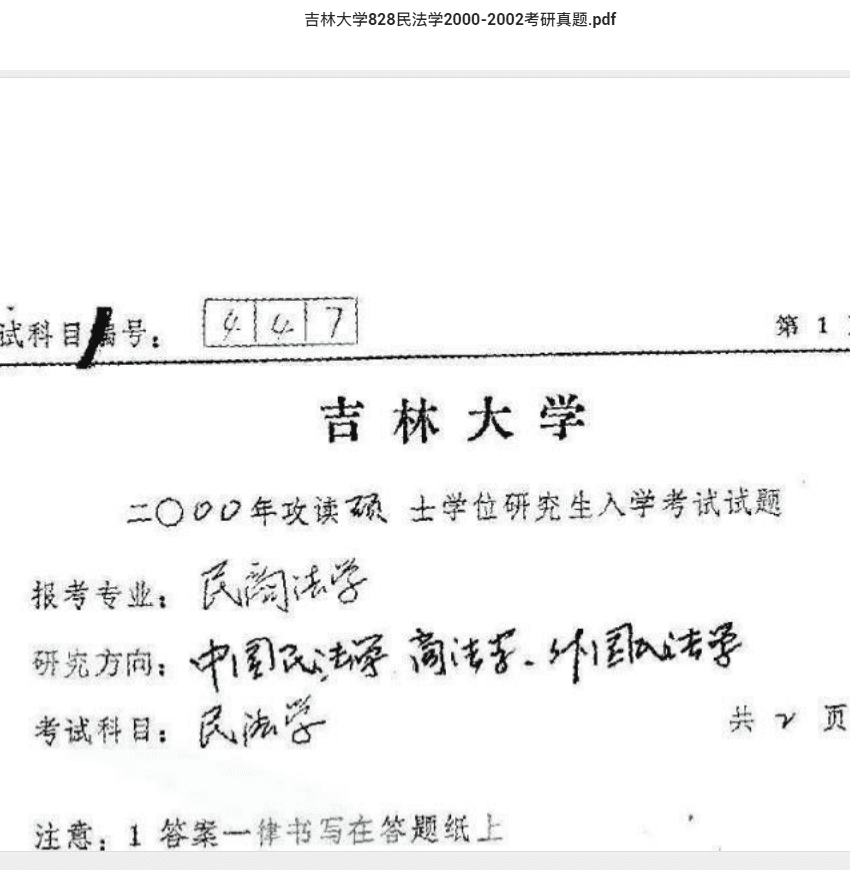 吉林大学828民法学2000-2002考研真题.pdf
试科目编号： 447 第 1
吉林大学
二〇〇〇年攻读硕士学位研究生入学考试试题
报考专业： 民商法学
研究方向： 中国民法学 商法学、外国民法学
考试科目： 民法学 共 2 页
注意： 1 答案一律书写在答题纸上